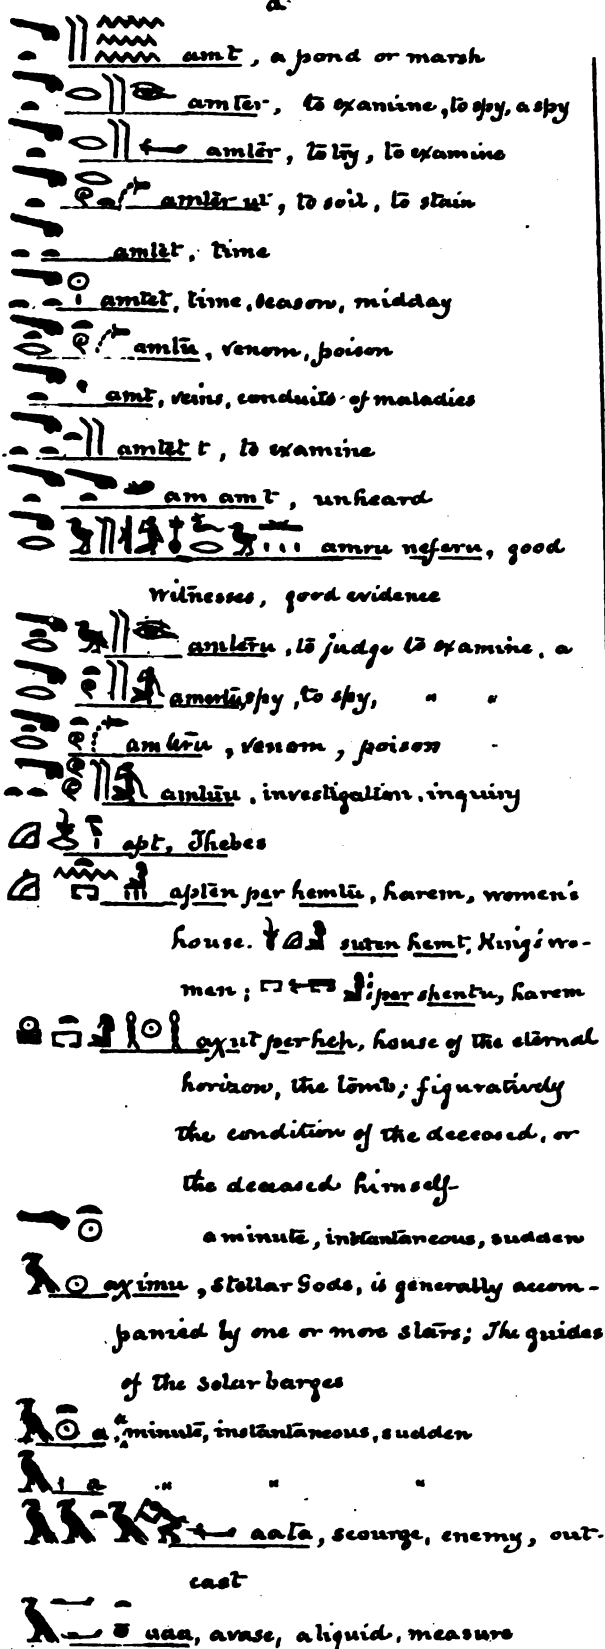 a
amt, a pond or marsh
amter, to examine, to spy, a spy
amtér, to try, to examine
amtér ut, to soil, to stain
amtet, time
amtet, time, season, midday
amtu, venom, poison
amt, veins, conduits of maladies
amtet t, to examine
am am t, unheard
amru neferu, good
witnesses, good evidence
amteru, to judge to examine, a
spy, to spy, " "
amteru, venom, poison
investigation, inquiry
apt, Thebes
apten per hemtu, harem, women's
house. suten hemt, King's wo-
men; per shentu, harem
axut per heh, house of the eternal
horizon, the tomb; figuratively
the condition of the deceased, or
the deceased himself-
a minute, instantaneous, sudden
aximu, stellar Gods, is generally accom-
panied by one or more stars; The guides
of the solar barges
a, a minute, instantaneous, sudden
a " " "
aata, scourge, enemy, out-
cast
aaa, a vase, a liquid, measure